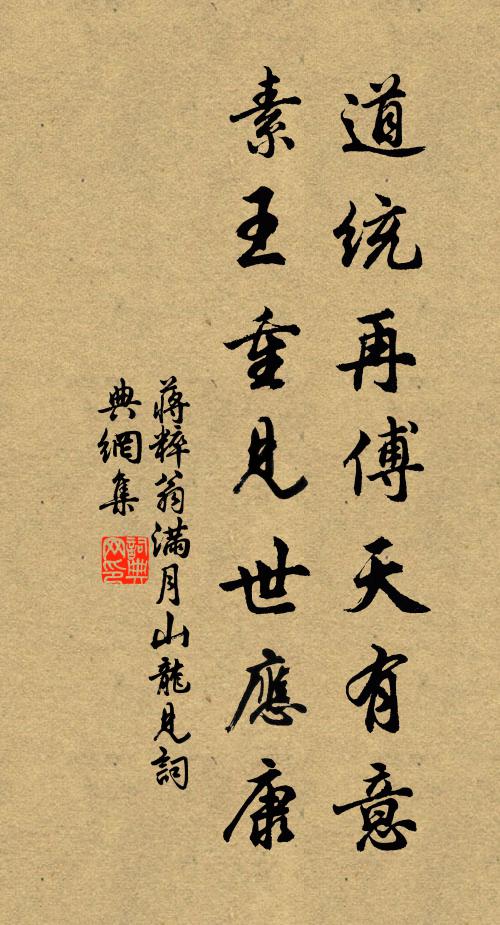 道統再傅天有意
素王重見世應康
蔣粹翁滿月山龍見詞
典網集
詞典網印